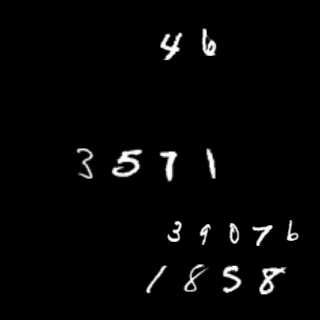 46
3571
39076
1858